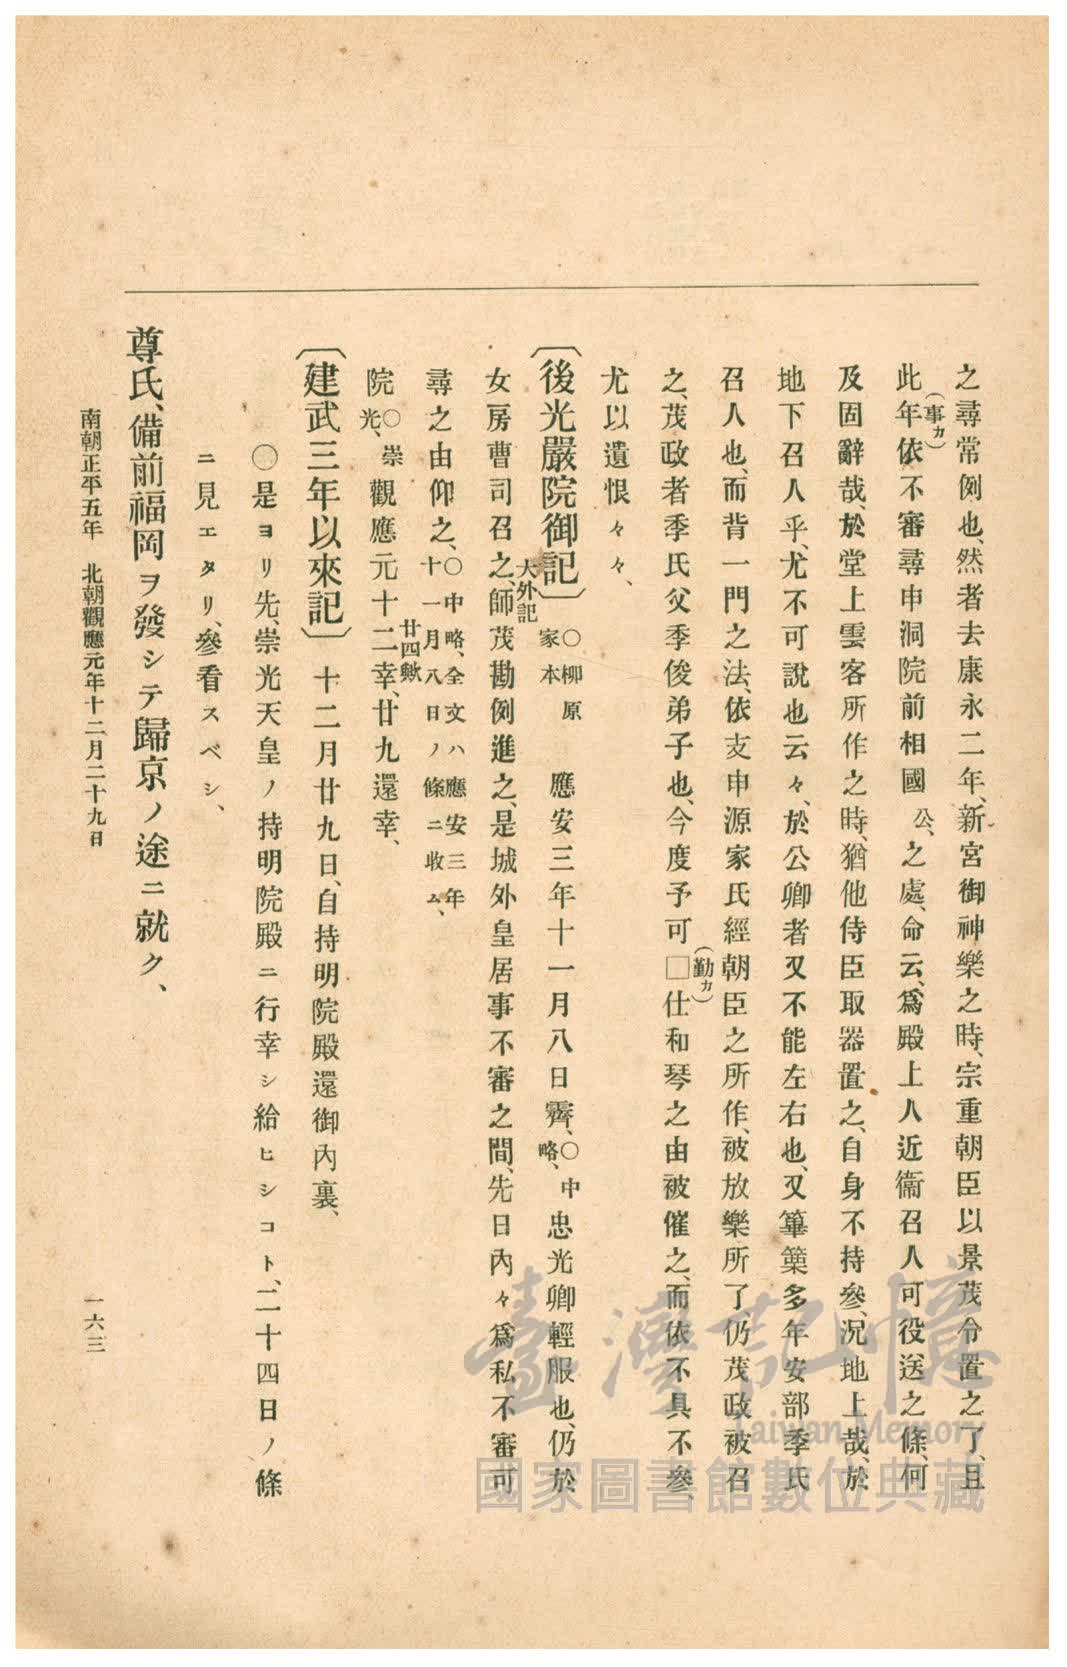 之尋常例也、然者去康永二年、新宮御神樂之時、宗重朝臣以景茂令置之了、且
此年(事カ)依不審尋申洞院前相國公、之處、命云、爲殿上人近衞召人可役送之條、何
及固辭哉、於堂上雲客所作之時、猶他侍臣取器置之、自身不持參、況地上哉、於
地下召人乎、尤不可說也云々、於公卿者又不能左右也、又篳篥多年安部季氏
召人也、而背一門之法、依支申源家氏經朝臣之所作、被放樂所了、仍茂政被召
之、茂政者季氏父季俊弟子也、今度予可□(勤カ)仕和琴之由被催之、而依不具不參、
尤以遺恨々々、
〔後光嚴院御記〕○柳原家本 應安三年十一月八日霽、○中略、忠光卿輕服也、仍於
女房曹司召之、大外記師茂勘例進之、是城外皇居事不審之間、先日內々爲私不審可
尋之由仰之、○中略、全文ハ應安三年十一月八日ノ條ニ收ム、
院○崇光、觀應元十二廿四歟幸、廿九還幸、
〔建武三年以來記〕十二月廿九日、自持明院殿還御內裏、
○是ヨリ先、崇光天皇ノ持明院殿ニ行幸シ給ヒシコト、二十四日ノ條
ニ見エタリ、參看スベシ、
尊氏、備前福岡ヲ發シテ歸京ノ途ニ就ク、
南朝正平五年 北朝觀應元年十二月二十九日
一六三
臺灣記憶
Taiwan Memory
國家圖書館數位典藏